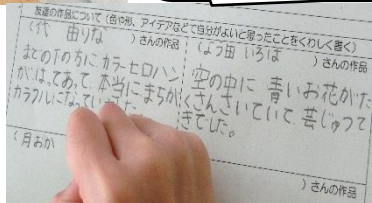 友達の作品について（色や形、アイデアなどで自分がよいと思ったことをくわしく書く）
（代 由りな ）さんの作品
まどの下の方に カラーセロハン
がはってあって、本当にまちが
カラフルになっていました。
（よう田 いろは ）さんの作品
空の中に 青いお花がた
くさんさいていて、芸じゅつて
きでした。
（月おか
）さんの作品